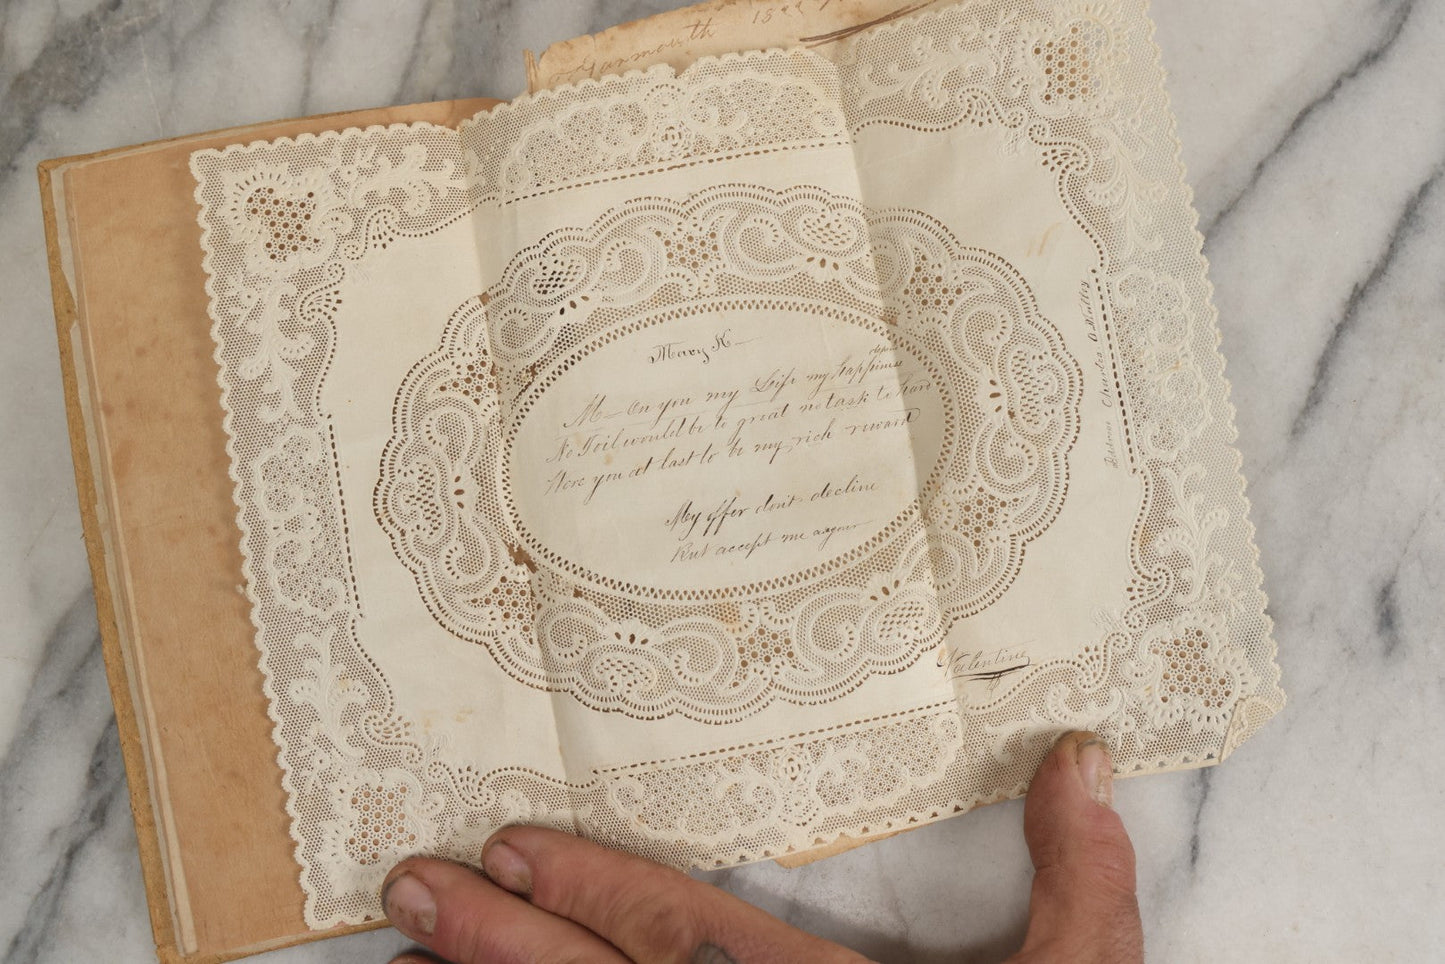 Yarmouth 1822
Mary K—
depends
M— On you my Life my happiness
No Toil would be to great no task to hard
Were you at last to be my rich reward
My offer dont decline
But accept me as your
Valentine
Charles O. Kelley